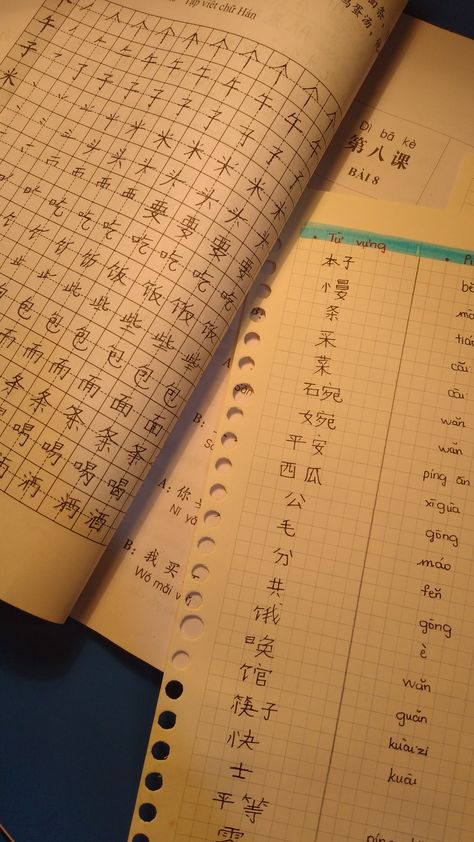 Tập viết chữ Hán
个 个 个 个 个 个
午 午 午 午 午
子 子 子 子 子
米 米 米 米 米
头 头 头 头
要 要 要 要
吃 吃 吃 吃 吃 吃
饭 饭 饭 饭
些 些 些 些
包 包 包 包 包
面 面 面
条 条 条 条 条
喝 喝 喝 喝
酒 酒 酒
面条,
蛋汤,
Dì bā kè
第八课
BÀI 8
A: 你
Nǐ
B: 我买
Wǒ mǎi
• Từ vựng
本子
慢
条
采 cǎi
菜 cài
碗 wǎn
婉 wǎn
平安 píng ān
西瓜 xīguā
公 gōng
毛 máo
分 fēn
共 gòng
饿 è
晚 wǎn
馆 guǎn
筷子 kuàizi
快 kuài
士
平等